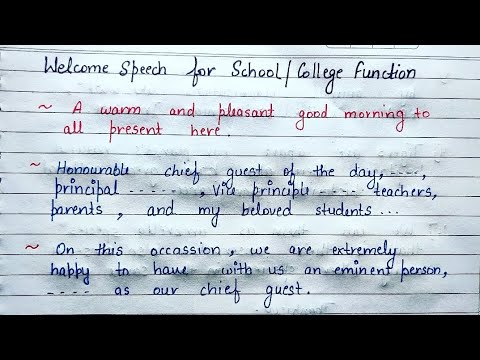 Welcome Speech for School/College Function
~ A warm and pleasant good morning to
all present here.
~ Honourable chief guest of the day, ----,
principal -----, Vice principle ---- teachers,
parents, and my beloved students...
~ On this occassion, we are extremely
happy to have with us an eminent person,
---- as our chief guest.